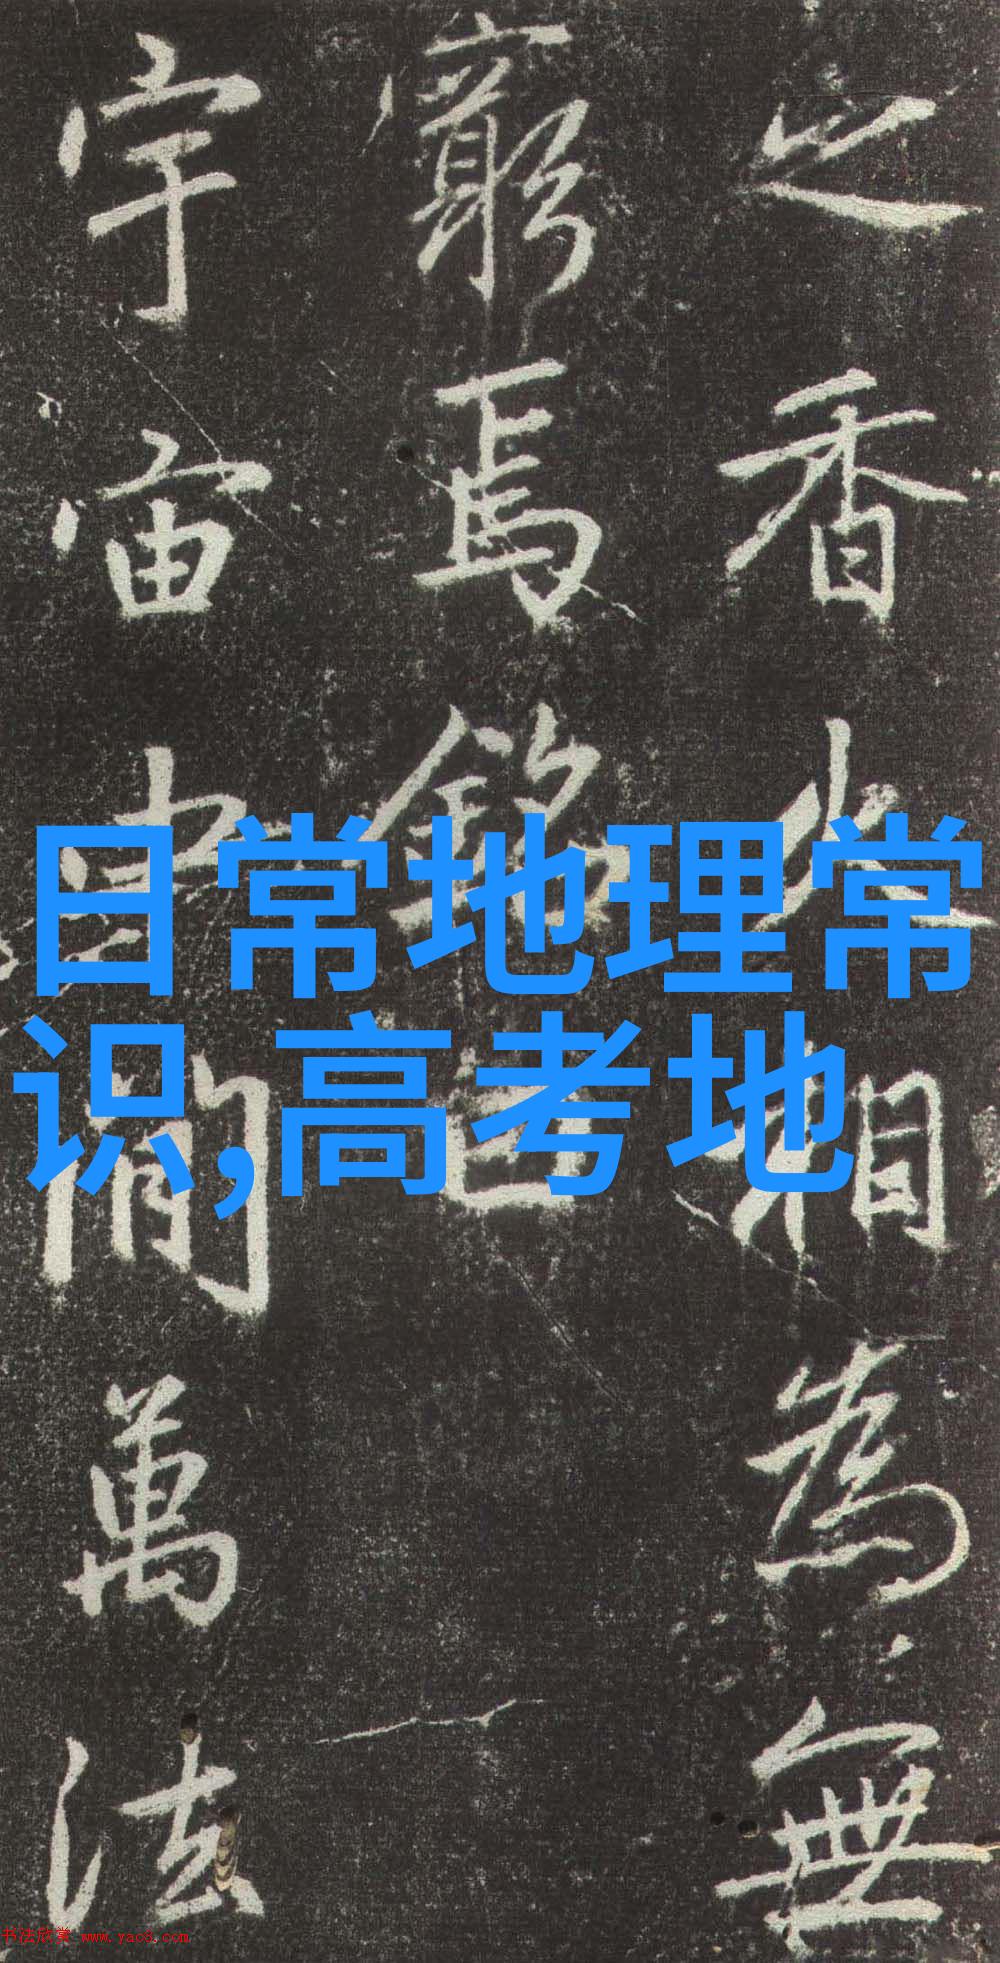 之香火相為無
窮焉銘曰
宇宙中間萬法
日常地理常
识,高考地
书法欣赏 www.yac8.com